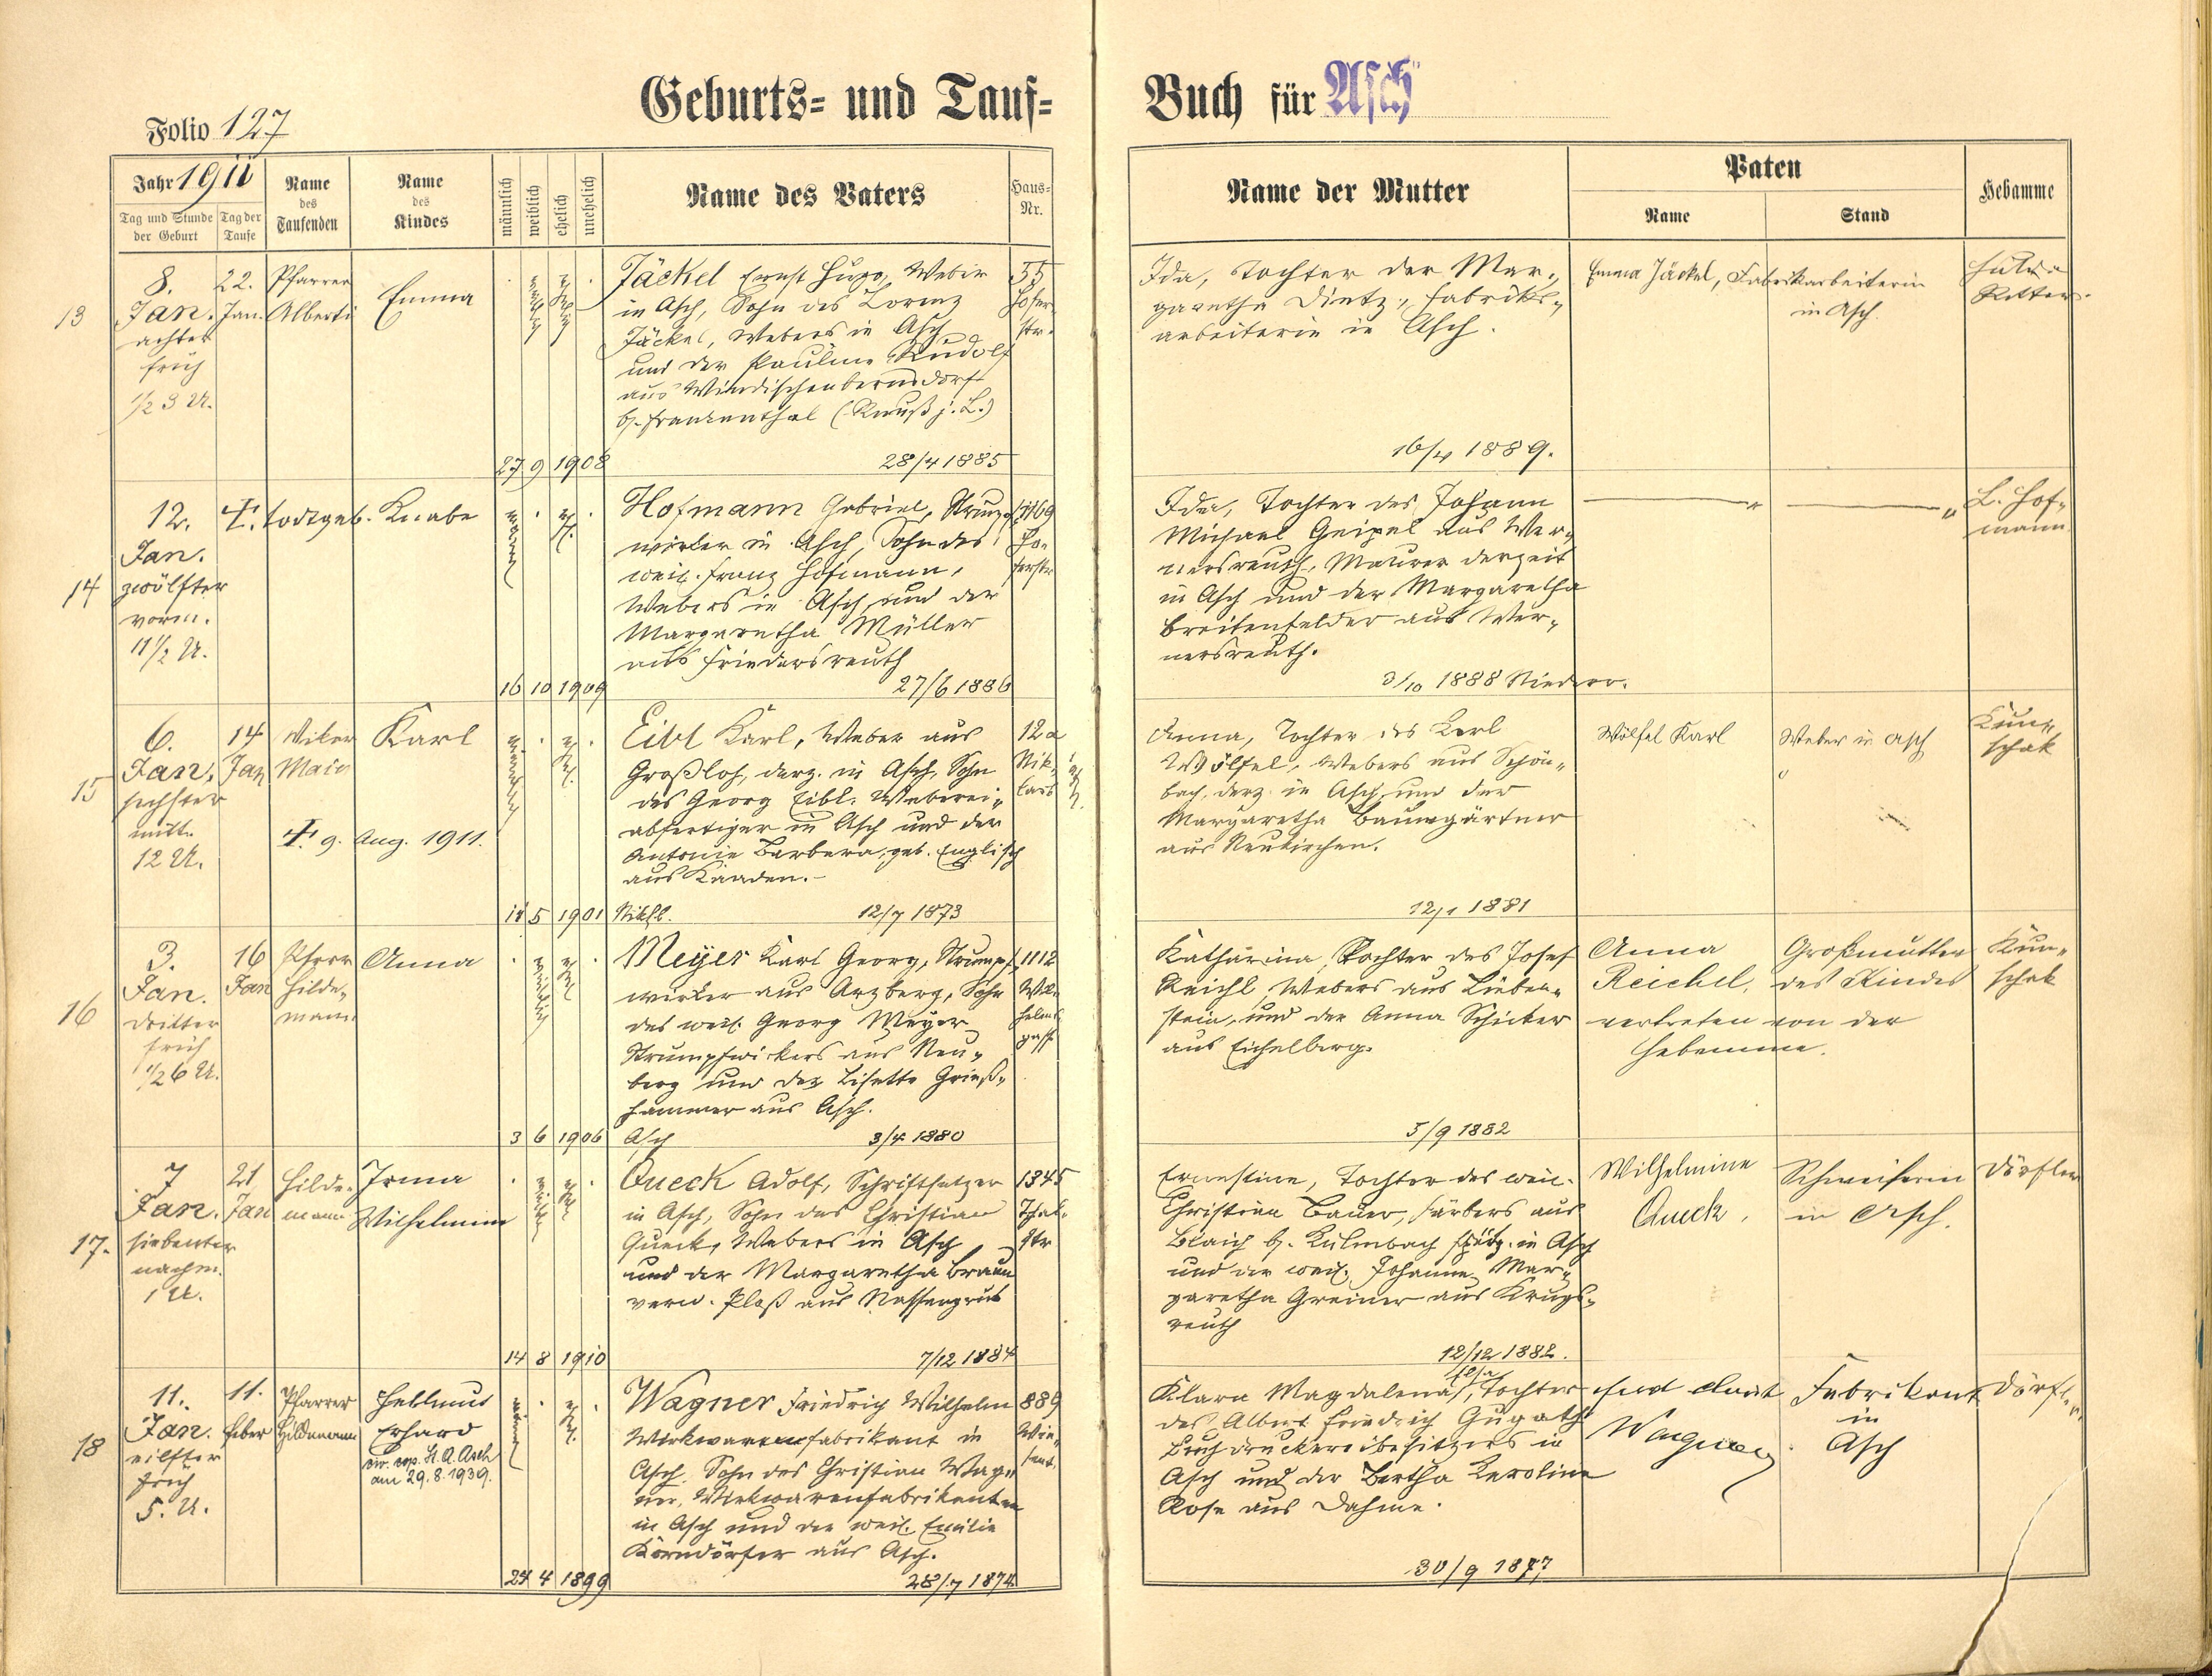 Geburts- und Tauf-
Buch für Asch
Folio 127
Jahr 1911
Tag und Stunde der Geburt
Tag der Taufe
Name des Taufenden
Name des Kindes
männlich
weiblich
ehelich
unehelich
Name des Vaters
Haus-Nr.
Name der Mutter
Paten
Name
Stand
Hebamme
13
8.
Jan.
achter
früh
1/2 3 U.
22.
Jan.
Pfarrer
Alberti
Emma
27 9 1908
Jäckel Ernst Hugo, Weber
in Asch, Sohn des Lorenz
Jäckel, Webers in Asch
und der Pauline Rudolf
aus Windischenbernsdorf
b. Frankenthal (Reuß j. L.)
28/4 1885
55
Hofer-
str.
Ida, Tochter der Mar-
garetha Dietz, Fabriks-
arbeiterin in Asch.
16/4 1889.
Emma Jäckel, Fabrikarbeiterin
in Asch.
Ritter
14
12.
Jan.
zwölfter
vorm.
11 1/2 U.
todtgeb. Knabe
16 10 1909
Hofmann Gabriel, Strumpf-
wirker in Asch, Sohn des
weil. Franz Hofmann,
Webers in Asch und der
Margaretha Müller
aus Friedersreuth
27/6 1886
1169
Ho-
ferstr.
Ida, Tochter des Johann
Michael Geipel aus Wer-
nersreuth, Maurer derzeit
in Asch und der Margaretha
Breitenfelder aus Wer-
nersreuth.
3/10 1888
L. Hof-
mann
15
6.
Jan.
sechster
mitt.
12 U.
14
Jan
Vikar
Karl
9. Aug. 1911.
5 1901
Eibl Karl, Weber aus
Großloh, derz. in Asch, Sohn
des Georg Eibl, Weberei-
abfertiger in Asch und der
Antonie Barbara, geb. Englisch
aus Kaaden.-
12/7 1873
12a
Nik-
las
Anna, Tochter des Karl
Wölfel, Webers aus Schön-
bach, derz. in Asch und der
Margaretha Baumgärtner
aus Neukirchen.
12/1 1881
Wölfel Karl
Weber in Asch
Kun-
schak
16
3.
Jan.
dritter
früh
1/2 6 U.
16
Jan
Pfarr
Hilde-
mann
Anna
3 6 1906
Meyer Karl Georg, Strumpf-
wirker aus Arzberg, Sohn
des weil. Georg Meyer
Strumpfwirkers aus Neu-
berg und der Lisette Grieß-
hammer aus Asch.
Asch 3/4 1880
1112
Wil-
helms
gasse
Katharina, Tochter des Josef
Reichl, Webers aus Lieben-
stein, und der Anna Schicker
aus Eichelberg.
5/9 1882
Anna
Reichel,
vertreten von der
Hebamme.
Großmutter
des Kindes
Kun-
schak
17.
7
Jan.
siebenter
nachm.
1 U.
21
Jan
Hilde-
mann
Irma
Wilhelmine
14 8 1910
Queck Adolf, Schriftsetzer
in Asch, Sohn des Christian
Queck, Webers in Asch
und der Margaretha Braun
verw. Ploß aus Nassengrub
7/12 1884
1345
Thal-
str
Ernestine, Tochter des weil.
Christian Bauer, Färbers aus
Blaich b. Kulmbach in Asch
und der weil. Johanne Mar-
garetha Greiner aus Krugs-
reuth
12/12 1882.
Wilhelmine
Queck,
Schweiferin
in Asch.
Dörfler
18
11.
Jan.
eilfter
früh
5. U.
11.
Feber
Pfarrer
Hildemann
Hellmut
Erhard
civ. cop. St. A. Asch
am 29. 8. 1939.
24 4 1899
Wagner Friedrich Wilhelm
Wirkwarenfabrikant in
Asch, Sohn des Christian Wag-
ner, Wirkwarenfabrikanten
in Asch und der weil. Emilie
Korndörfer aus Asch.
28/7 1874
889
Klara Magdalena, Tochter
des Albert Friedrich Gugath
Buchdruckereibesitzers in
Asch und der Bertha Karoline
Rose aus Dahme.
30/9 1877
Wagner
Fabrikant
in
Asch
Dörfler